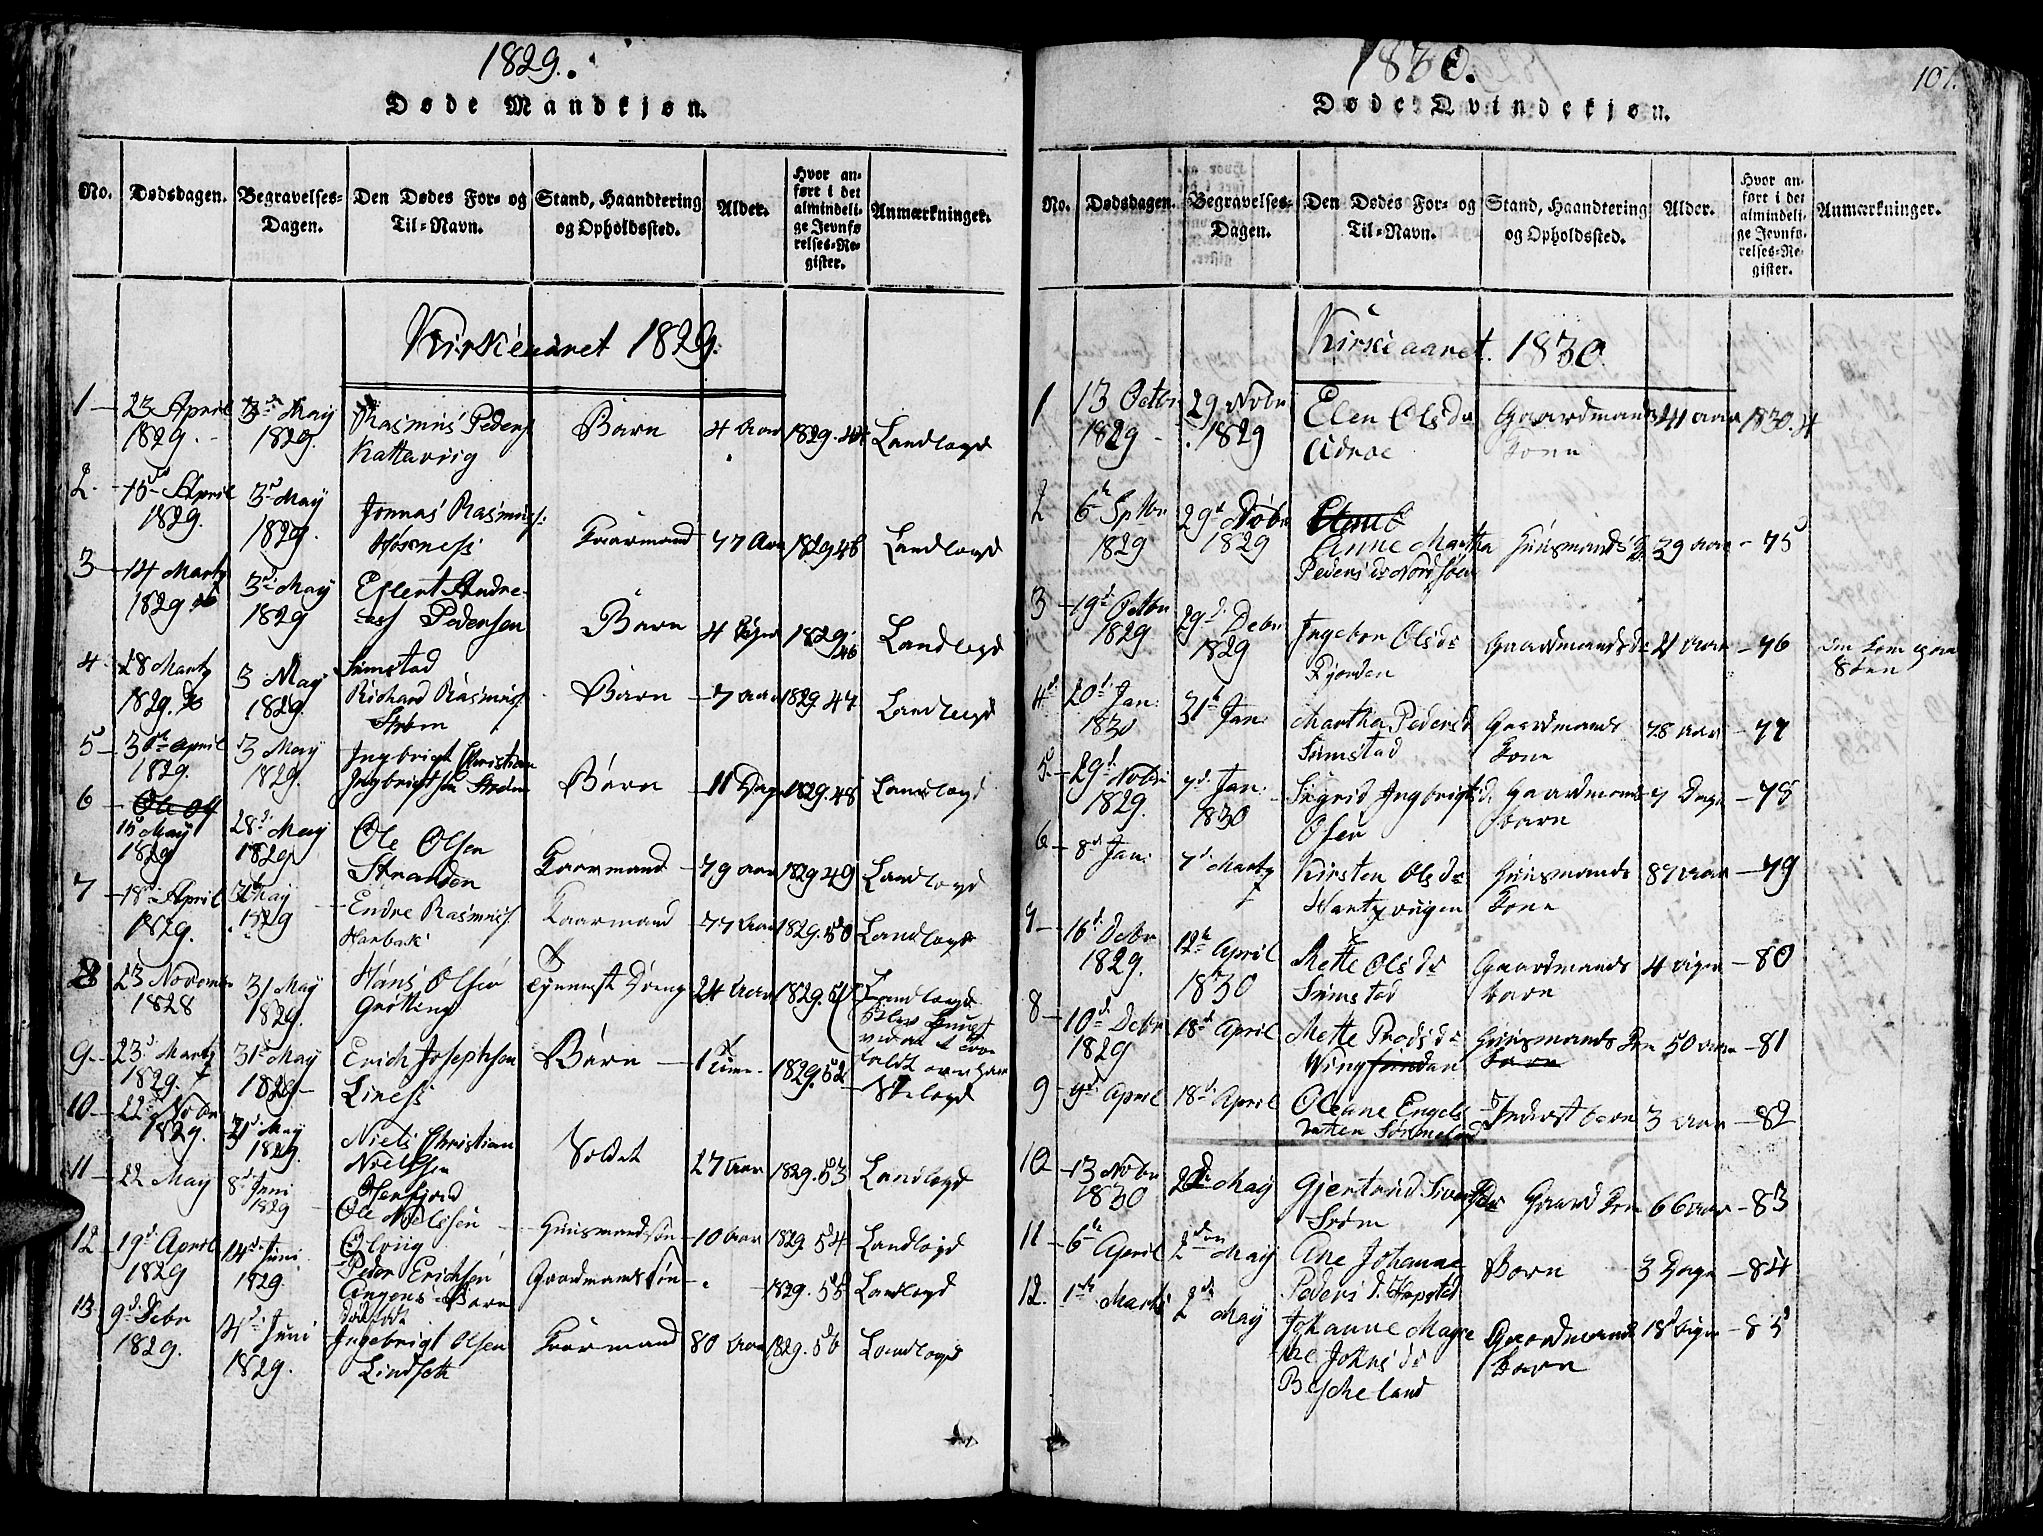 1829.
Døde Mandkjøn.
No. Dødsdagen. Begravelses-Dagen. Den Dødes For- og Til-Navn. Stand, Haandtering og Opholdssted. Alder. Hvor anført i det almindelige Jevnførelses-Register. Anmærkninger.
Kirkeaaret 1829.
1 23 April 1829. 3d May 1829. Rasmus Peders Kattavig Barn 4 Aar 1829. 44 Landlagd
2. 15d April 1829. 3d May 1829. Jonnas Rasmuss: Hosness Kaarmand 77 Aar 1829 45 Landlagd
3 14 Martz 1829 3d May 1829 Eflert Andreass Pedersen Simstad Barn 4 1829. 46 Landlagd
4. 28 Martz 1829. 3 May 1829. Richard Rasmuss. Strøm Barn 7 Aar 1829. 47 Landlagd
5 30th April 1829. 3 May 1829. Ingbrigt Christian Ingbrigtsen Strøm Barn 11 Dage 1829. 48 Landlagd
6 15d May 1829 28d May 1829 Ole Olsen Stranden Kaarmand 79 Aar 1829 49 Landlagd
7 18d April 1829. 31 May 1829 Endre Rasmuss. Harbak Kaarmand 77 Aar 1829. 50 Landlagd
8 23 Novem 1828 31 May 1829. Hans Olsen Grøtting Tjennest Dreng 24 Aar 1829. 51 Landlagd
9 23d Martz 1829. 31d May 1829 Erich Josephsen Liness Barn 1 Time 1829. 52
10 22 Novbr 1829. 31d May 1829. Niels Christian Nielssen Stenfjord Soldat 27 Aar 1829. 53 Landlagd
11 22 May 8d Juni 1829 Ole Nielssen Olvig Huusmandsøn 10 Aar 1829. 54 Landlagd
12 19d April 1829 14d Juni 1829. Peder Erichsen Barn dødfødt Gaardmandssøn 1829. 55 Landlagd
13 9d Debr 1829. 14d Juni 1829. Ingebrigt Olsen Lindseth Kaarmand 80 Aar 1829. 56 Landlagd
1830.
101.
Døde Qvindekjøn.
No. Dødsdagen. Begravelses-Dagen. Den Dødes For- og Til-Navn. Stand, Haandtering og Opholdssted. Alder. Hvor anført i det almindelige Jevnførelses-Register. Anmærkninger.
Kirkeaaret. 1830.
1 13 Octbr 1829 29 Novbr 1829 Elen Olsdr Gaardmands Kone 41 Aar 1830.
2 6th Sptbr 1829 29d Novbr 1829 Anne Martha Pedersdr Huusmands 39 Aar 75
3 19d Octbr 1829 29d. Debr 1829 Ingebor Olsdr Gaardmandsdr 76
4 20d Jan: 1830 31th Jan: Martha Pedersd Simstad Gaardmands Kone 78 Aar 77
5. 29d Novbr 1829. 7d. Jan: 1830 Sigrid Ingbrigtsd. Osen Gaardmands barn 7 Dage 78
6 8d Jan: 7d Martz Kirsten Olsdr Hartzvigen Huusmands Kone 87 Aar 79
7 16d Debr 1829. 12th April 1830 Mette Olsdr Simstad Gaardmands barn 4 Uger 80
8 10d Debr 1829 18d April Mette Huusmands Kon 50 Aar 81
9 9d April 18d April Oleane Engels datter Inderst barn 3 Aar 82
10 13 Novbr 1830 2d May Gjertrud Strøm Gaard Kon 66 Aar 83
11 6th April 2den May Ane Johanne Pedersd. Hopstad Barn 3 Dage 84
12. 1ste Martz 2d May Johanne Magrethe Johnsdr Beskeland Gaardmands Barn 18 Uger 85